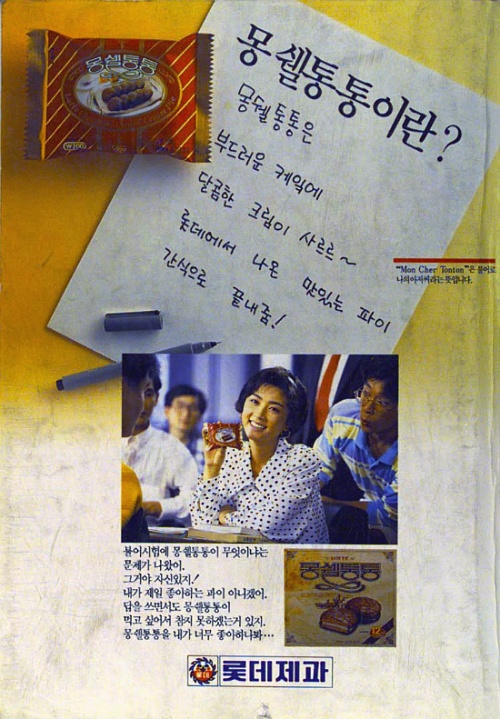 몽쉘통통
₩100
몽쉘통통이란?
몽쉘통통은
부드러운 케잌에
달콤한 크림이 사르르~
롯데에서 나온 맛있는 파이
간식으로 끝내줌!
"Mon Cher Tonton"은 불어로
나의 아저씨라는 뜻입니다.
불어시험에 몽쉘통통이 무엇이냐는
문제가 나왔어.
그거야 자신있지!
내가 제일 좋아하는 파이 아니겠어.
답을 쓰면서도 몽쉘통통이
먹고 싶어서 참지 못하겠는거 있지.
몽쉘통통을 내가 너무 좋아하나봐…
몽쉘통통
롯데
롯데제과